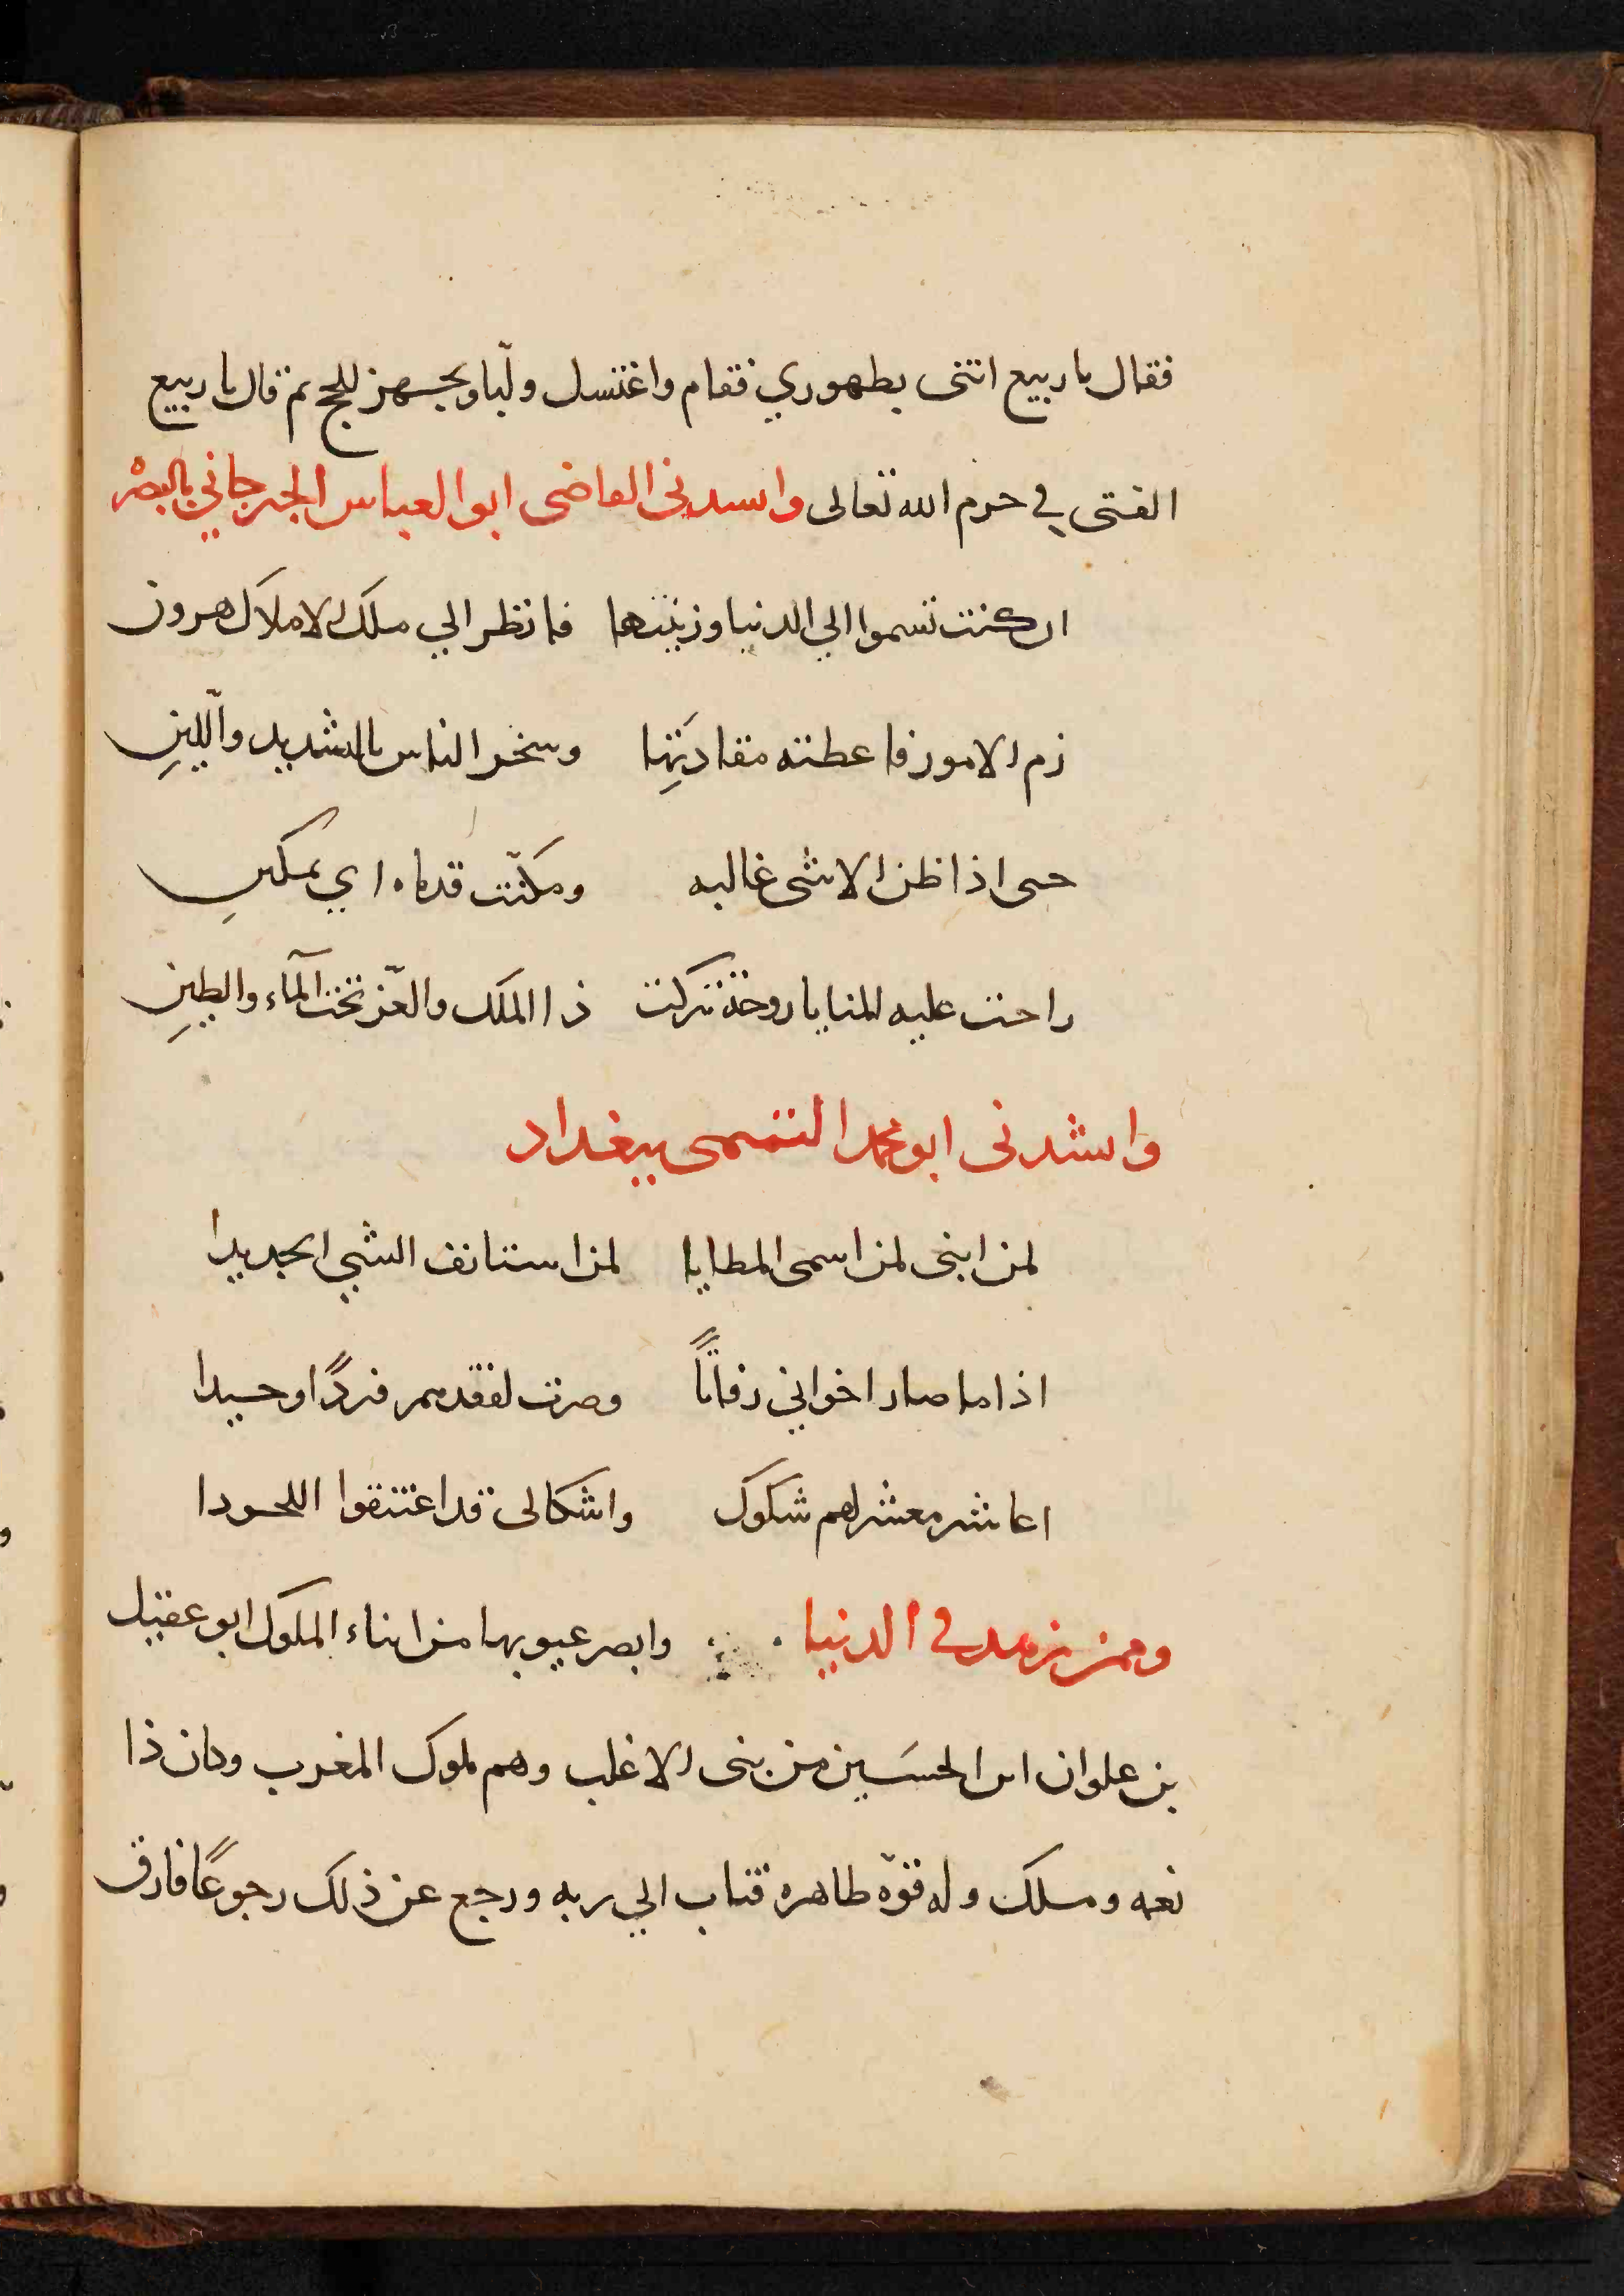 فقال يا ربيع ائتنى بطهوري فقام واغتسل ولبّا وتجهز للحج ثم قال يا ربيع
القنى في حرم الله تعالى وانشدنى القاضى ابو العباس الجرجاني بالبصره
ان كنت تسموا الي الدنيا وزينتها فانظر الي ملك الاملاك هرون
زم الامور فاعطته مقادتها وسخر الناس بالتشديد واللّينِ
حتى اذا ظن الا شى غالبه ومكنّت قدماه اي تمكينِ
راحت عليه المنايا روحة تركت ذا الملك والعّز تحت المآء والطينِ
وانشدنى ابو محمد التميمى ببغداد
لمن ابنى لمن اسمى المطايا لمن استانف الشي الجديدا
اذا ما صار اخواني رفاتاً وصرت لفقدهم فردًا وحيدا
اعاشر معشرا هم شكوك واشكالى قد اعتنقوا اللحودا
وممن زهد في الدنيا وابصر عيوبها من ابناء الملوك ابو عقيل
بن علوان ابن الحسَين من بنى الاغلب وهم ملوك المغرب وكان ذا
نعمه وملك وله قوّة ظاهره فتاب الي ربه ورجع عن ذلك رجوعًا فارق